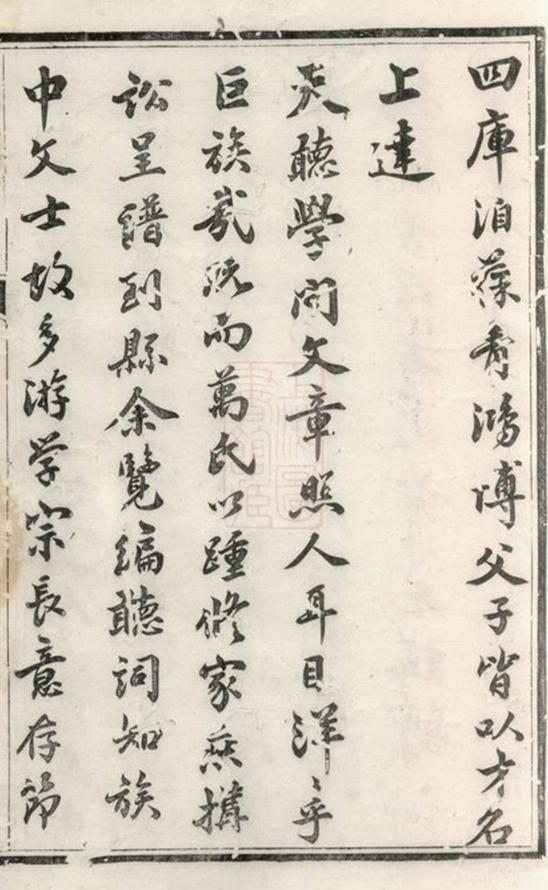 四庫洎鴻博父子皆以才名
上達
天聽學問文章照人耳目洋〻乎
巨族哉既而萬氏以踵修家乘搆
訟呈譜到縣余覽編聽詞知族
中文士故多游学宗長意存節